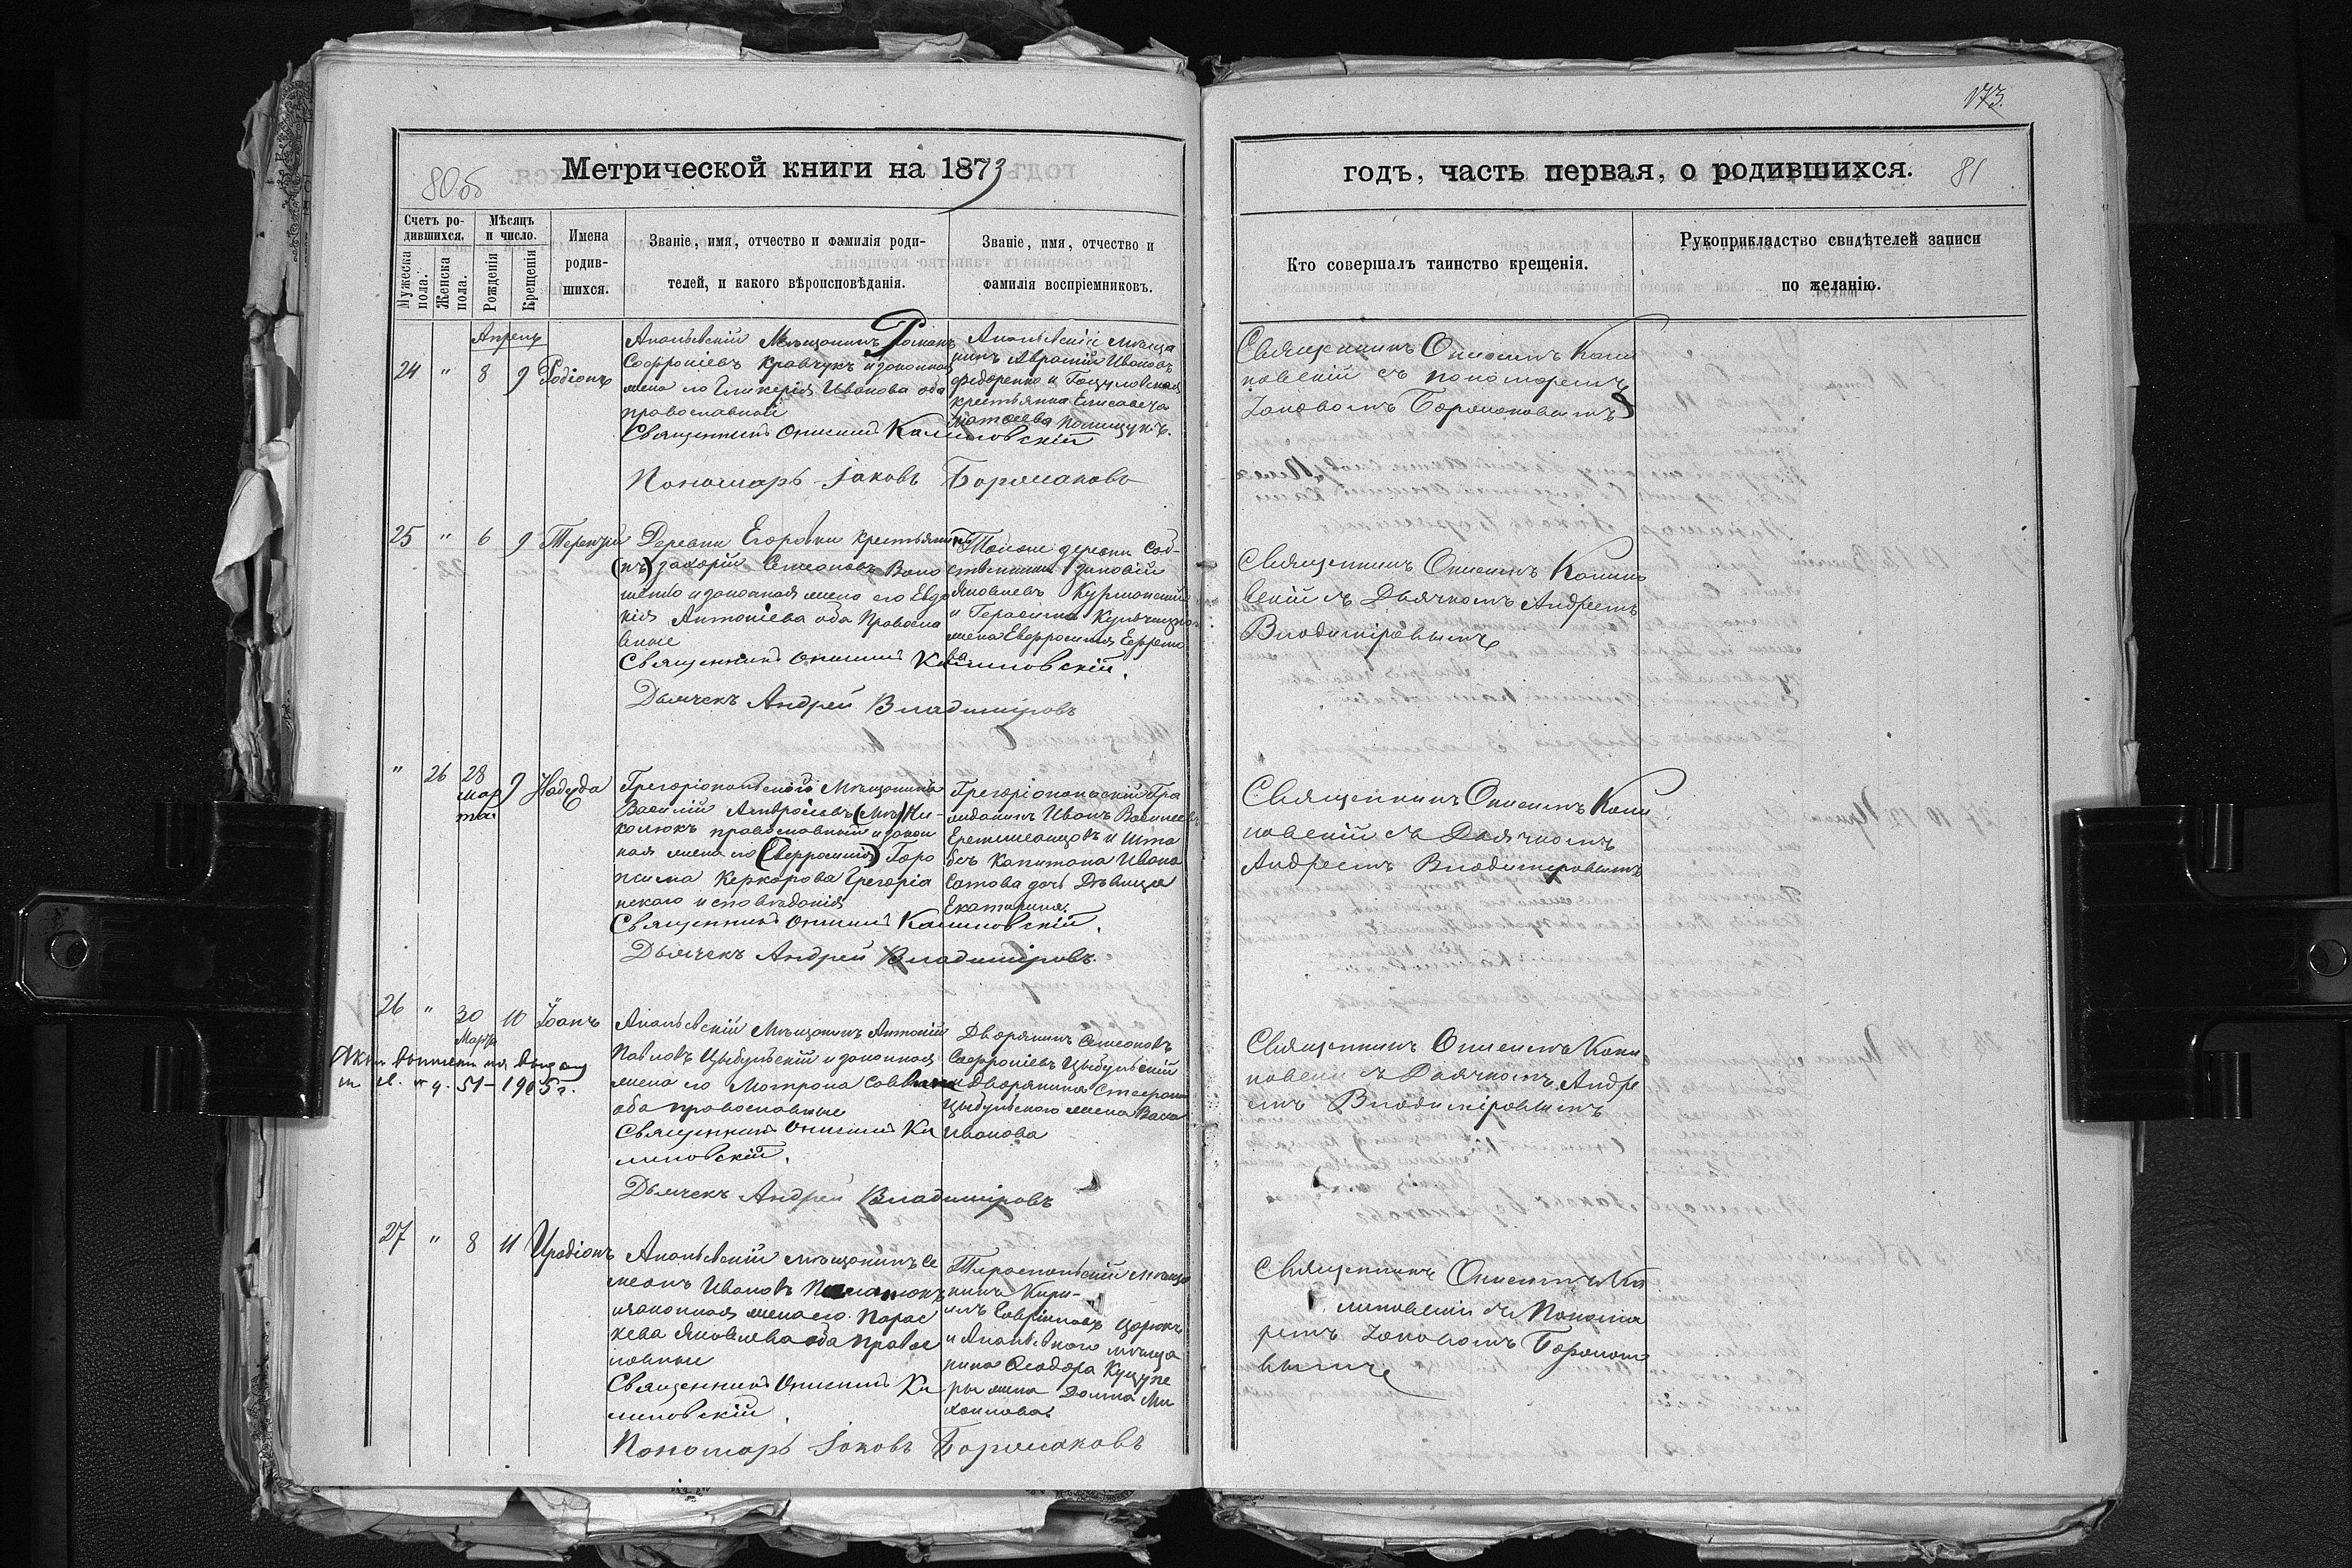 173.
80об
Метрической книги на 1873
годъ, часть первая, о родившихся.
81
Счетъ родившихся.
Мужеска пола.
Женска пола.
Мѣсяцъ и число.
Рожденія
Крещенія
Имена
родив-
шихся.
Званіе, имя, отчество и фамилія роди-
телей, и какого вѣроисповѣданія.
Званіе, имя, отчество и
фамилія воспріемниковъ.
Кто совершалъ таинство крещенія.
Рукоприкладство свидѣтелей записи
по желанію.
Апрель
24 " 8 9 Родіонъ
Ананьевскій Мѣщанинъ Романъ
Софроніевъ Кравчукъ и законная
жена его Гликерія Иванова оба
православные
Священникъ Онисимъ Калиновскій
Пономарь Іаковъ
Ананьевскій мѣща
нинъ Авраамій Ивановъ
Федоренко и
крестьянка Елисавета
Матѳеева Полищукъ.
Священникъ Онисимъ Кали
новскій съ пономаремъ
Іаковомъ
25 " 6 9 Терентій
Деревни Егоровки крестьяни
(нъ) Захарій Симеоновъ
и законная жена его Евдо
кія Антоніева оба Правосла
вные
Священникъ Онисимъ Калиновскій.
Дьячекъ Андрей Владиміровъ
Тойже деревни Соб-
ственникъ Зиновій
Яковлевъ
и Герасима
жена Евфросинія Ефреми
ва
Священникъ Онисимъ Калино
вскій съ Дьячкомъ Андреемъ
Владиміровымъ
" 26 28 марта 9 Надежда
Григоріопольскій Мѣщанинъ
Василій Амвросіевъ Ни-
колюкъ православный и закон
ная жена его (Евфросинія)
Керкорова Грегоріа
нскаго исповѣданія
Священникъ Онисимъ Калиновскій.
Дьячекъ Андрей Владиміровъ.
Григоріопольскій Гра
жданинъ Иванъ Василіев
и Шта
бсъ Капитана Ивана
дочь Дѣвица
Екатерина.
Священникъ Онисимъ Кали
новскій съ Дьячкомъ
Андреемъ Владиміровымъ
26 " 30 Марта 10 Іоанъ
51-1905г.
Ананьевскій Мѣщанинъ Антоній
Павловъ Цыбульскій и законная
жена его Матрона Саввина
оба православные
Священникъ Онисимъ Ка
линовскій.
Дьячекъ Андрей Владиміровъ
Дворянинъ Семеонъ
Софроніевъ Цыбульскій
и Дворянина Стефана
Цыбульского жена Васса
Иванова
Священникъ Онисимъ Кали
новскій съ Дьячкомъ Андре
емъ Владиміровымъ
27 " 8 11 Иродіонъ
Ананьевскій мѣщанинъ Си
меонъ Ивановъ
и законная жена его Парас
кева Яковлева оба Правос
лавные
Священникъ Онисимъ Ка
линовскій.
Пономарь Іаковъ
Тираспольскій Мѣща
нинъ Кири-
лъ Гавріиловъ
и Ананьевского мѣща
нина Ѳеодора
жена Домна Ми
хаилова
Священникъ Онисимъ Ка
линовскій съ Понома
ремъ Іаковомъ